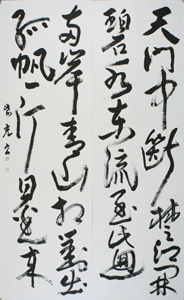 天門中斷楚江開
碧水東流至此迴
兩岸青山相對出
孤帆一片日邊來